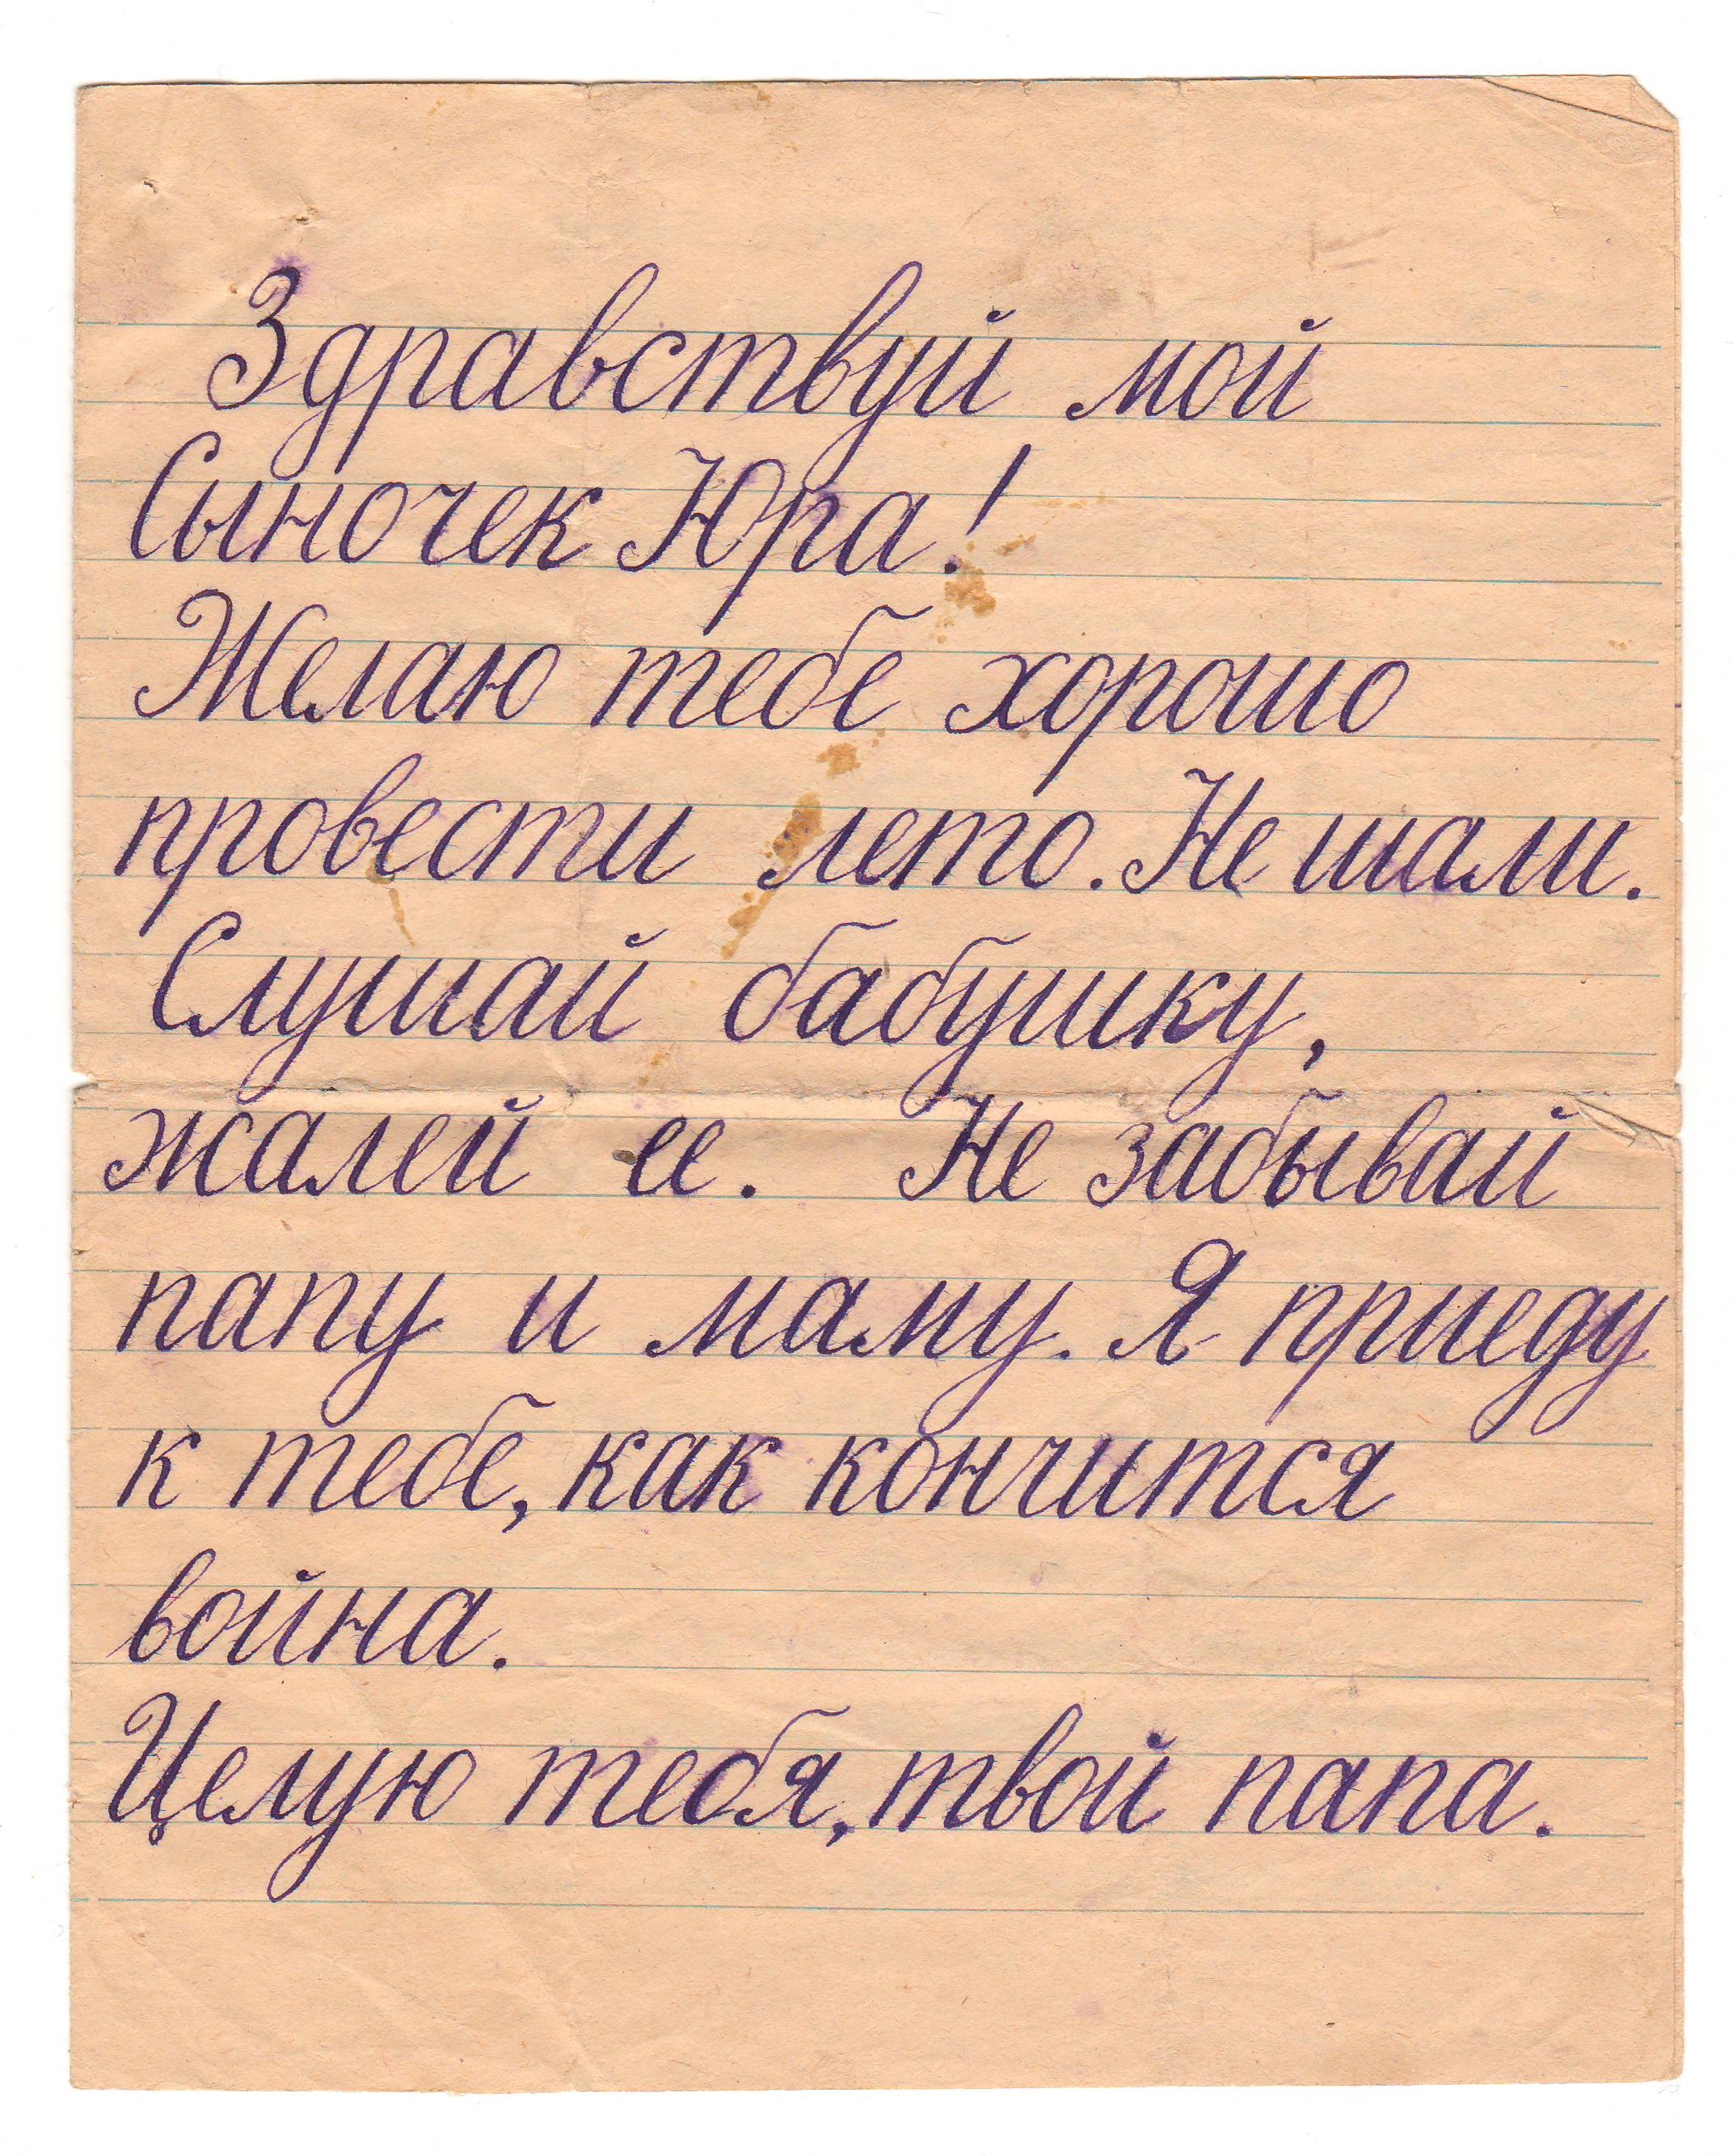 Здравствуй мой
Сыночек Юра!
Желаю тебе хорошо
провести лето. Не шали.
Слушай бабушку,
жалей ее. Не забывай
папу и маму. Я приеду
к тебе, как кончится
война.
Целую тебя, твой папа.